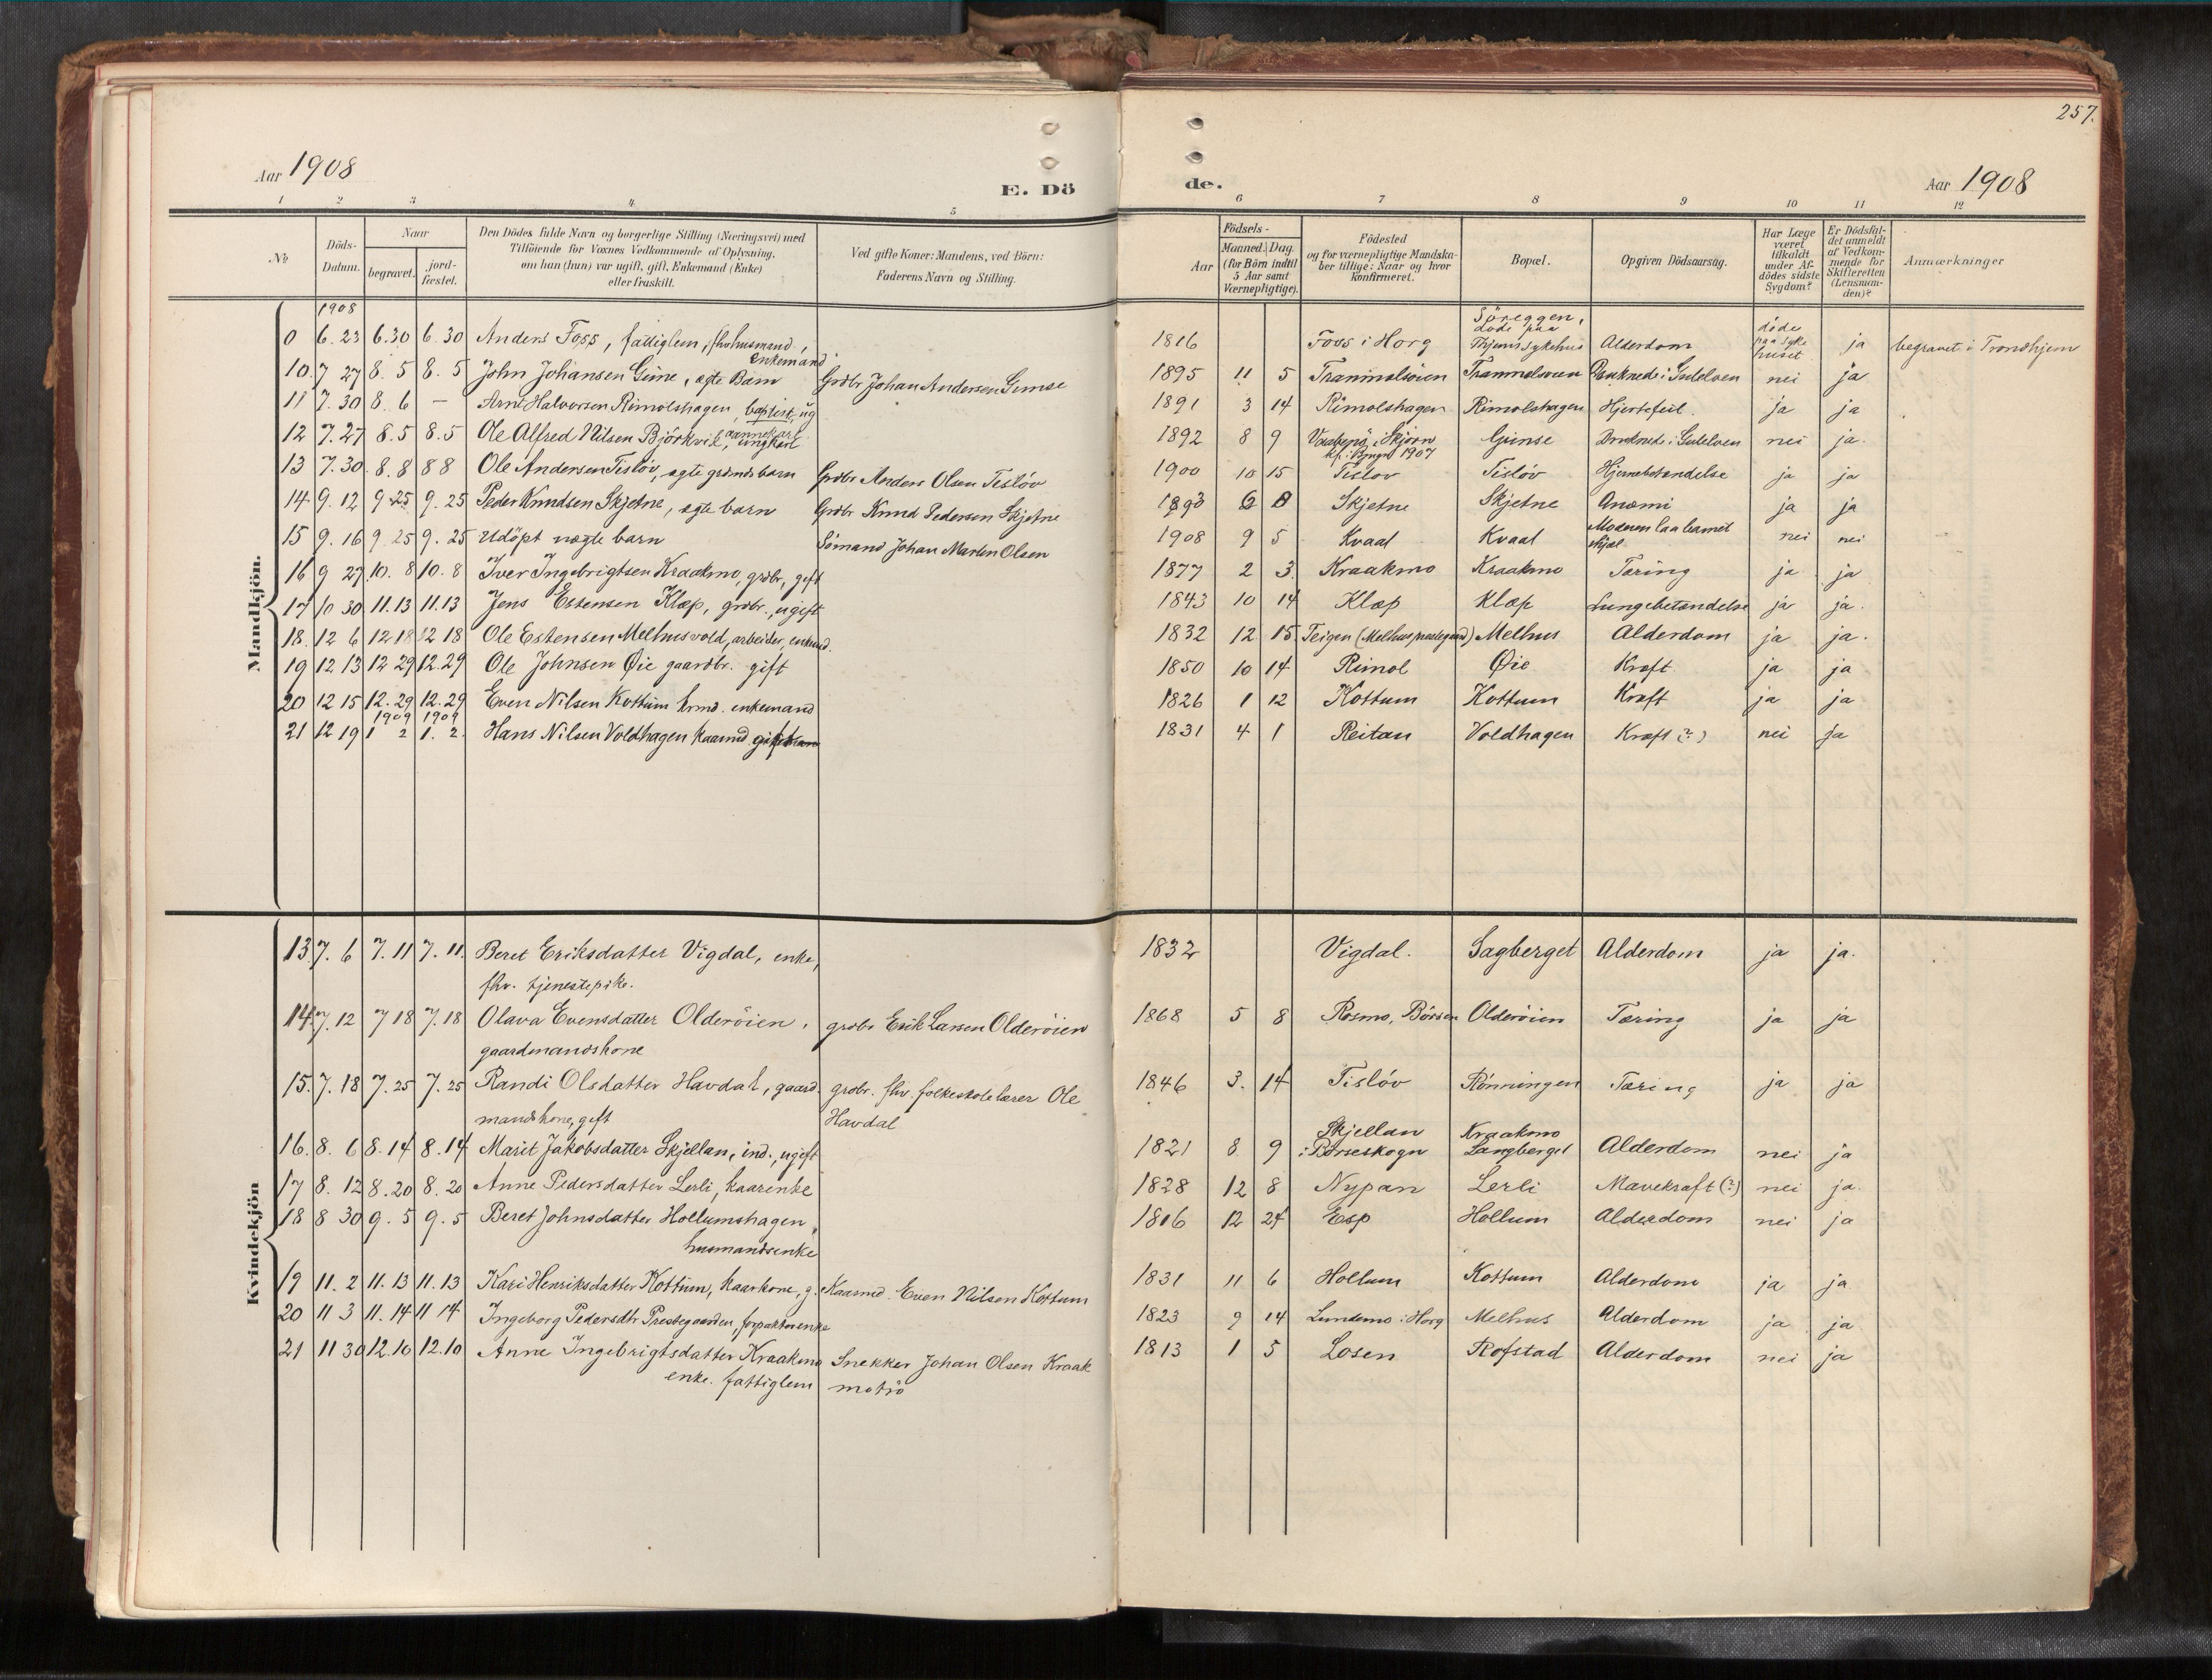 257.
Aar 1908
E. Dö
de.
Aar 1908
1 2 3 4 5 6 7 8 9 10 11 12
No
Döds-Datum.
Naar
begravet. jord-fæstet.
Den Dödes fulde Navn og borgerlige Stilling (Næringsvei) med
Tilföiende for Voxnes Vedkommende af Oplysning,
om han (hun) var ugift, gift, Enkemand (Enke)
eller fraskilt.
Ved gifte Koner: Mandens, ved Börn:
Faderens Navn og Stilling.
Födsels-
Aar Maaned. Dag.
(for Börn indtil
5 Aar samt
Værnepligtige).
Födested
og for værnepligtige Mandska-
ber tillige: Naar og hvor
konfirmeret.
Bopæl.
Opgiven Dödsaarsag.
Har Læge
været
tilkaldt
under Af-
dödes sidste
Sygdom?
Er Dödsfal-
det anmeldt
af Vedkom-
mende for
Skifteretten
(Lensman-
den)?
Anmærkninger
Mandkjön.
1908
6. 23 6.30 6. 30 Anders Foss, fattiglem, fhv husmand, enkemand 1816 Foss i Horg döde paa Thjems sykehus Alderdom döde paa syke huset ja begravet i Trondhjem
10. 7 27 8. 5 8. 5 John Johansen Gimse, ægte Barn Grdbr Johan Andersen Gimse 1895 11 5 Trammelsöien Trammelsöien Druknede i Gulelven nei ja
11 7. 30 8. 6 — Arnt Halvorsen Rimolshagen, baptist, ug 1891 3 14 Rimolshagen Rimolshagen Hjertefeil. ja ja
12 7. 27 8. 5 8. 5 Ole Alfred Nilsen Björkvik, ungkarl 1892 8 9 Skjörn 1907 Gimse Druknede i Gulelven nei ja.
13 7. 30. 8. 8 8 8 Ole Andersen Tislöv, ægte barn Grdbr Anders Olsen Tislöv 1900 10 15 Tislöv Tislöv Hjernebetændelse ja ja
14 9. 12 9 25 9. 25 Peder Knudsen Skjetne, ægte barn Grdbr Knud Pedersen Skjetne 1893 6 8 Skjetne Skjetne Anæmi ja ja
15 9. 16 9. 25 9. 25 Udöpt uægte barn Sömand Johan Martin Olsen 1908 9 5 Kvaal Kvaal Moderen laa barnet ihjæl nei nei
16 9 27 10. 8 10. 8 Iver Ingebrigtsen Kraakmo, grdbr, gift 1877 2 3. Kraakmo Kraakmo Tæring ja ja
17 10 30 11. 13 11. 13 Jens Estensen Klæp, grdbr., ugift 1843 10 14 Klæp Klæp Lungebetændelse ja ja.
18. 12 6 12 18 12 18 Ole Estensen Melhusvold, arbeider, enkmd. 1832 12 15 Teigen (Melhus prestegaard) Melhus Alderdom ja ja.
19 12 13 12 29 12. 29 Ole Johnsen Øie gaardbr. gift 1850 10 14 Rimol Øie Kræft. ja ja
20 12 15 12. 29 12. 29 Even Nilsen Kottum krmd. enkemand 1826 1 12 Kottum Kottum Kræft ja ja
1909 1909
21 12 19 1 2 1. 2. Hans Nilsen Voldhagen kaarmd gift 1831 4 1 Reitan Voldhagen Kræft (?) nei ja
Kvindekjön
13. 7. 6 7. 11 7. 11. Beret Eriksdatter Vigdal, enke, 1832 Vigdal. Sagberget Alderdom ja ja.
fhv. tjenestepike.
14. 7. 12 7 18 7. 18 Olava Evensdatter Olderöien, grdbr Erik Larsen Olderöien 1868 5 8 Rosmo, Börsen Olderöien Tæring ja ja
gaardmandskone
15. 7. 18 7. 25 7. 25 Randi Olsdatter Havdal, gaard- grdbr. fhv. folkeskolelærer Ole 1846 3. 14 Tislöv Rönningen Tæring ja ja
mandskone, gift Havdal
16. 8. 6 8. 14 8. 14 Marit Jakobsdatter Skjellan, ind., ugift 1821 8 9 Skjellan i Börseskogn Kraakmo Langberget Alderdom nei ja
17 8. 12 8. 20 8. 20 Anne Pedersdatter Lerli, kaarenke 1828 12 8 Nypan Lerli Mavekræft (?) nei ja.
18 8 30 9. 5 9. 5 Beret Johnsdatter Hollumshagen, 1816 12 24 Esp Hollum Alderdom nei ja
husmandsenke
19 11. 2 11. 13 11. 13 Kari Henriksdatter Kottum, kaarkone, g. Kaarmd. Even Nilsen Kottum 1831 11 6 Hollum Kottum Alderdom ja ja
20 11 3 11. 14 11 14 Ingeborg Pedersdtr Prestegaarden, forpakterenke 1823 9 14 Lundemo i Horg Melhus Alderdom ja ja
21 11 30 12. 10 12. 10 Anne Ingebrigtsdatter Kraakmo Snekker Johan Olsen Kraak 1813 1 5 Losen Rofstad Alderdom nei ja
enke. fattiglem motrö